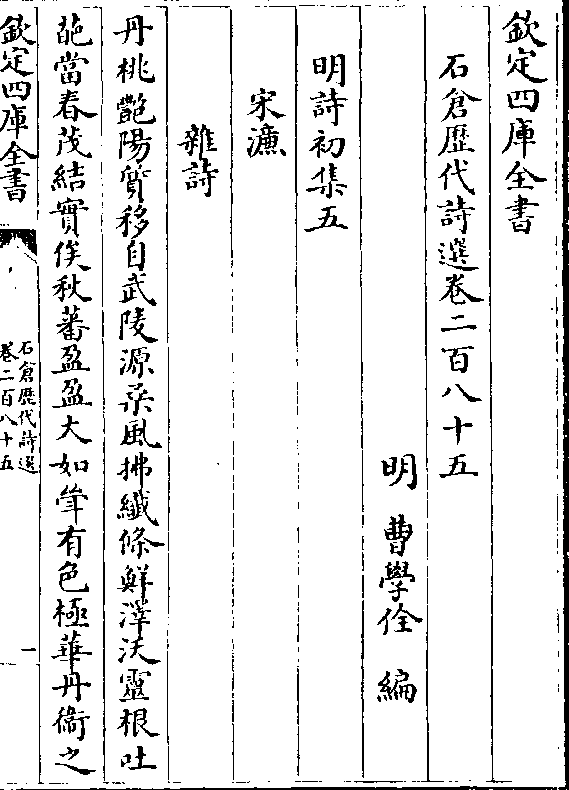 欽定四庫全書
石倉歴代詩選卷二百八十五
明 曹學佺 編
明詩初集五
宋濂
雜詩
丹桃艷陽質移自武陵源柔風拂纖條鮮澤沃靈根吐
葩當春茂結實俟秋蕃盈盈大如斝有色極華丹銜之
欽定四庫全書
石倉歷代詩選
卷二百八十五
一